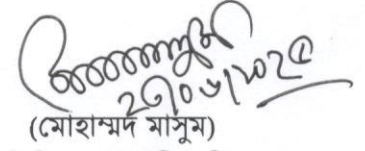 ২৭।০৬।২০২৫
(মোহাম্মদ মাসুম)